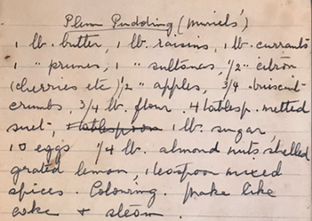 Plum Pudding (Muriels')
1 lb. butter, 1 lb. raisins, 1 lb. currants
1 " prunes, 1 " sultanas, 1/2 " citron
(cherries etc) 1/2 " apples, 3/4 briscuit
crumbs, 3/4 lb. flour. 4 tablesp. melted
suet, 1 tablespoon 1 lb. sugar,
10 eggs 1/4 lb. almond nuts shelled
grated lemon, 1 teaspoon mixed
spices. Colouring. Make like
cake & steam.